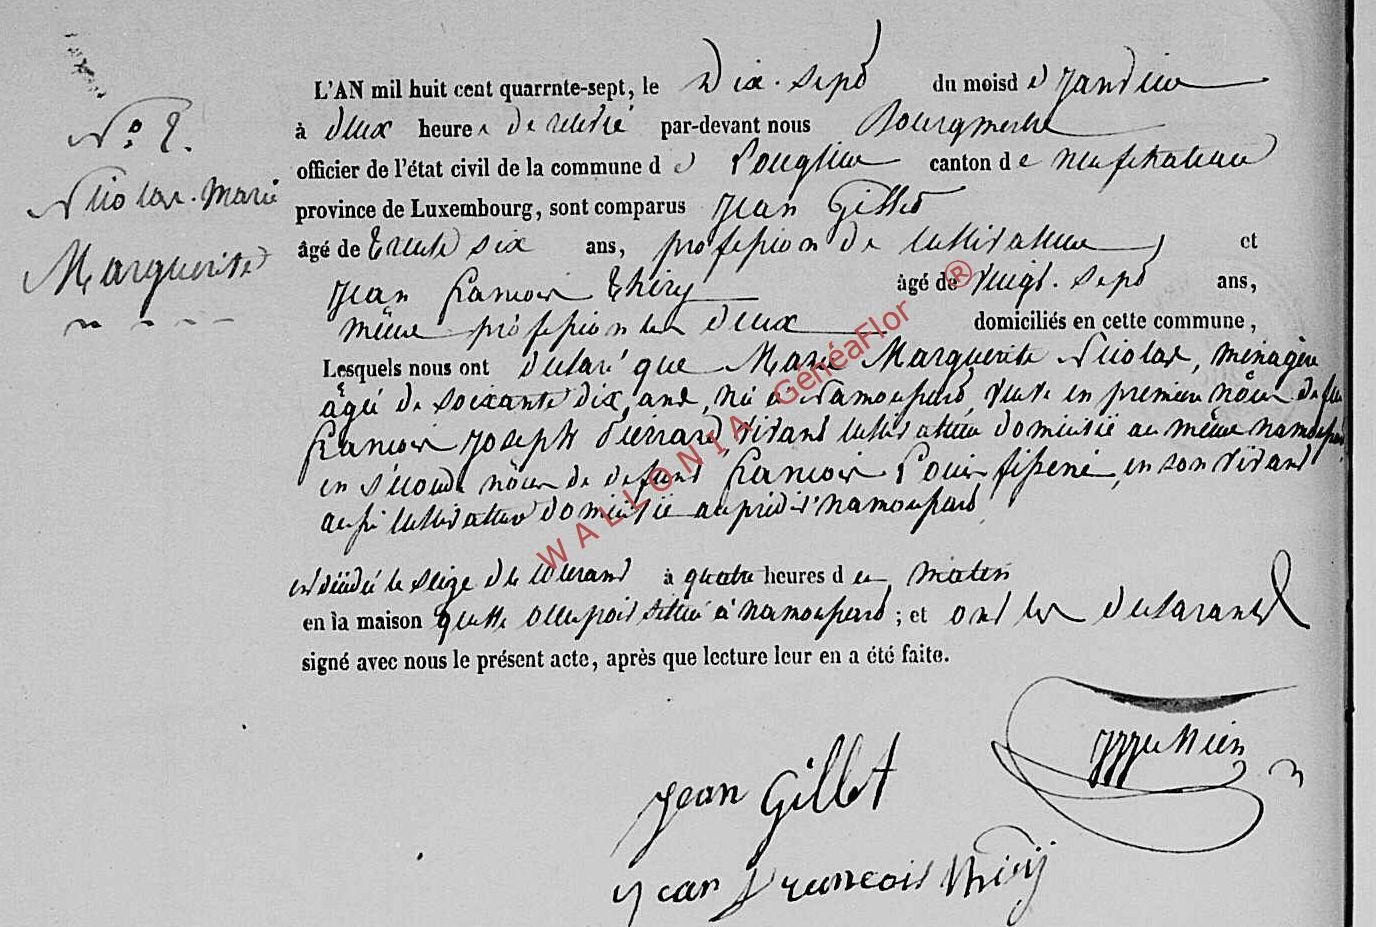 N.° 2.
Nicolas. Marie
Marguerite
L'AN mil huit cent quarrnte-sept, le Dix-sept du moisd e Janvier
à deux heures de relevé par-devant nous Bourgmestre
officier de l'état civil de la commune d e Longlier canton de neufchateau
province de Luxembourg, sont comparus Jean Gillet
âgé de trente six ans, profession de cultivateur, et
Jean francois thiry âgé de vingt-sept ans,
même profession les deux domiciliés en cette commune,
Lesquels nous ont déclaré que Marie Marguerite Nicolas, ménagère
âgée de soixante dix ans, né à Namoussart, veuve en première nôces de feu
francois Joseph Pierrard, vivant cultivateur domicilié au même namoussart
en séconde nôces de défunt francois Louis fisséné, en son vivant
aussi cultivateur domicilié au prédit namoussart
est dédédée le seize du courant à quatre heures d u matin
en la maison quelle occupoit située à namoussart ; et ont les déclarants
signé avec nous le présent acte, après que lecture leur en a été faite.
Jean Gillet
Jean Francois Thiry
WALLONIA GenéaFlor ®